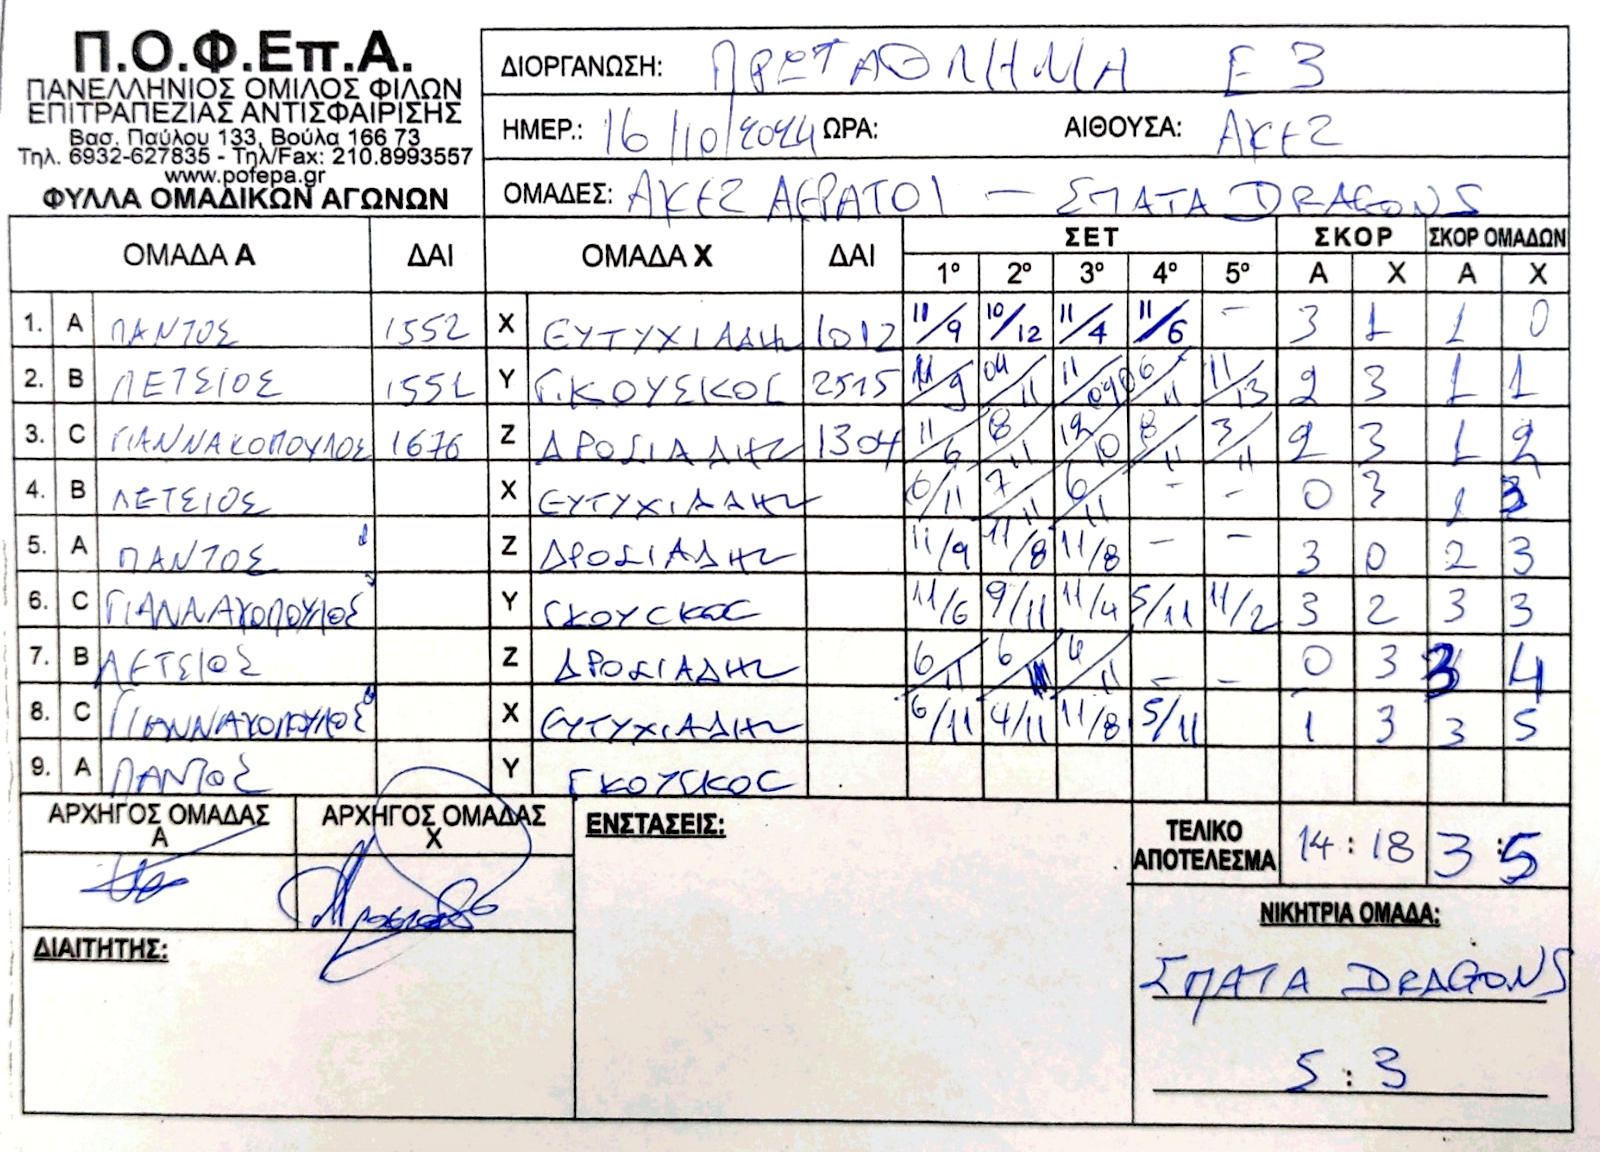 Π.Ο.Φ.Επ.Α.
ΠΑΝΕΛΛΗΝΙΟΣ ΟΜΙΛΟΣ ΦΙΛΩΝ
ΕΠΙΤΡΑΠΕΖΙΑΣ ΑΝΤΙΣΦΑΙΡΙΣΗΣ
Βασ. Παύλου 133, Βούλα 166 73
Τηλ. 6932-627835 - Τηλ/Fax: 210.8993557
www.pofepa.gr
ΦΥΛΛΑ ΟΜΑΔΙΚΩΝ ΑΓΩΝΩΝ
ΔΙΟΡΓΑΝΩΣΗ: ΠΡΩΤΑΘΛΗΜΑ Ε3
ΗΜΕΡ.: 16/10/2024 ΩΡΑ: ΑΙΘΟΥΣΑ: ΑΚΕΖ
ΟΜΑΔΕΣ: ΑΚΕΖ ΑΕΡΑΤΟΙ — ΣΠΑΤΑ DRAGONS
ΟΜΑΔΑ Α ΔΑΙ ΟΜΑΔΑ Χ ΔΑΙ ΣΕΤ ΣΚΟΡ ΣΚΟΡ ΟΜΑΔΩΝ
1º 2º 3º 4º 5º Α Χ Α Χ
1. Α ΠΑΝΤΟΣ 1552 Χ ΕΥΤΥΧΙΑΔΗΣ 1012 11/9 10/12 11/4 11/6 - 3 1 1 0
2. Β ΛΕΤΣΙΟΣ 1551 Υ ΓΚΟΥΣΚΟΣ 2515 11/9 04/11 11/09 06/11 11/13 2 3 1 1
3. C ΓΙΑΝΝΑΚΟΠΟΥΛΟΣ 1676 Ζ ΔΡΟΣΙΑΔΗΣ 1304 11/6 8/11 12/10 8/11 3/11 2 3 1 2
4. Β ΛΕΤΣΙΟΣ Χ ΕΥΤΥΧΙΑΔΗΣ 6/11 7/11 6/11 - - 0 3 1 3
5. Α ΠΑΝΤΟΣ Ζ ΔΡΟΣΙΑΔΗΣ 11/9 11/8 11/8 - - 3 0 2 3
6. C ΓΙΑΝΝΑΚΟΠΟΥΛΟΣ Υ ΓΚΟΥΣΚΟΣ 11/6 9/11 11/4 5/11 11/2 3 2 3 3
7. Β ΛΕΤΣΙΟΣ Ζ ΔΡΟΣΙΑΔΗΣ 6/11 6/11 6/11 - - 0 3 3 4
8. C ΓΙΑΝΝΑΚΟΠΟΥΛΟΣ Χ ΕΥΤΥΧΙΑΔΗΣ 6/11 4/11 11/8 5/11 1 3 3 5
9. Α ΠΑΝΤΟΣ Υ ΓΚΟΥΣΚΟΣ
ΑΡΧΗΓΟΣ ΟΜΑΔΑΣ Α
ΑΡΧΗΓΟΣ ΟΜΑΔΑΣ Χ
ΕΝΣΤΑΣΕΙΣ:
ΤΕΛΙΚΟ ΑΠΟΤΕΛΕΣΜΑ 14:18 3:5
ΔΙΑΙΤΗΤΗΣ:
ΝΙΚΗΤΡΙΑ ΟΜΑΔΑ:
ΣΠΑΤΑ DRAGONS
5:3